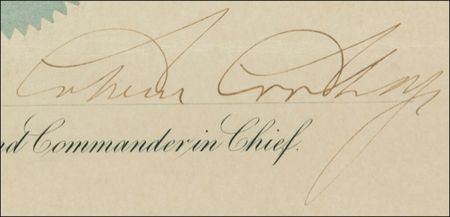 Calvin Coolidge
nd Commander in Chief.